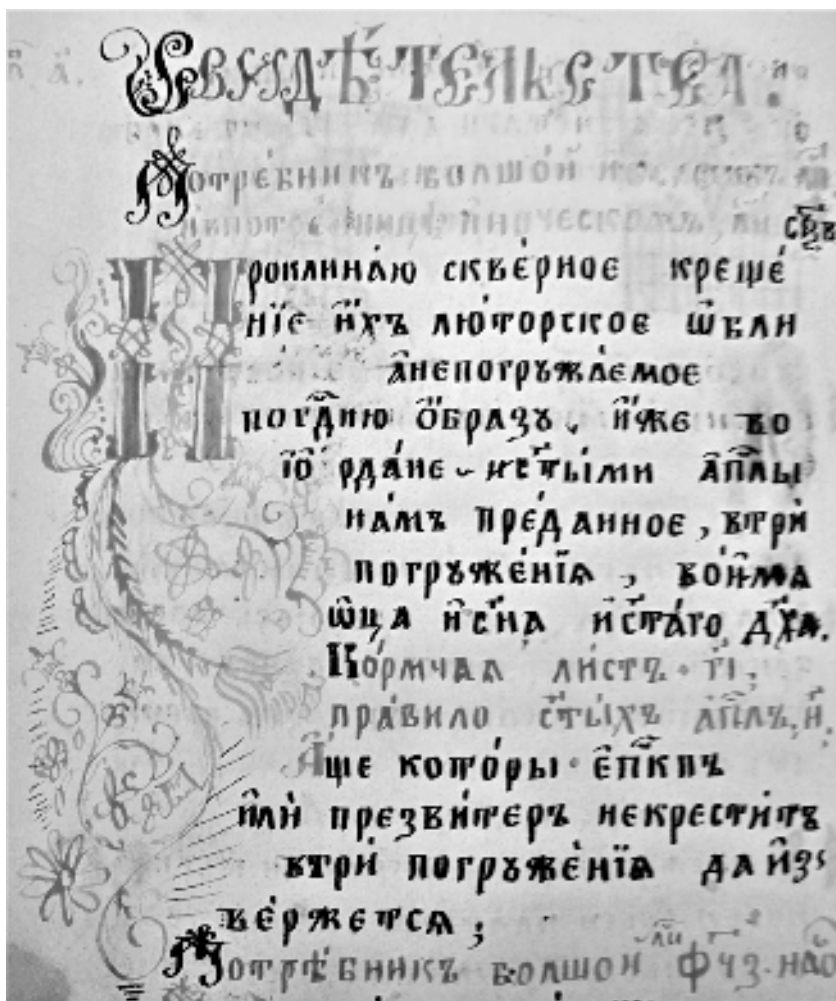 Свидѣтельства.
Потре́бникъ болшо́й
Проклина́ю скве́рное креще́
нїе и҆́хъ лю́торское ѡ҆бли
а҆непогрꙋжа́емое
погⷭ҇дню ѻ҆́бразъ, и҆́же во
і҆ѻ рда́не и҆ст҃ы́ми а҆пⷭ҇лы
на́мъ пре́данное, втрѝ
погрꙋже́нїѧ, вои҆́мѧ
ѻ҆ц҃а и҆сн҃а и҆ст҃а́гѡ дх҃а.
Ко́рмчаѧ ли́стъ г҃і,
пра́вило ст҃ы́хъ а҆пⷭ҇лъ, н҃.
А҆́ще кото́ры е҆пⷭ҇кпъ
и҆лѝ презви́теръ некрести́тъ
втрѝ погрꙋже́нїѧ да и҆з̾
ве́ржетсѧ;
Потрѣ́бникъ болшои